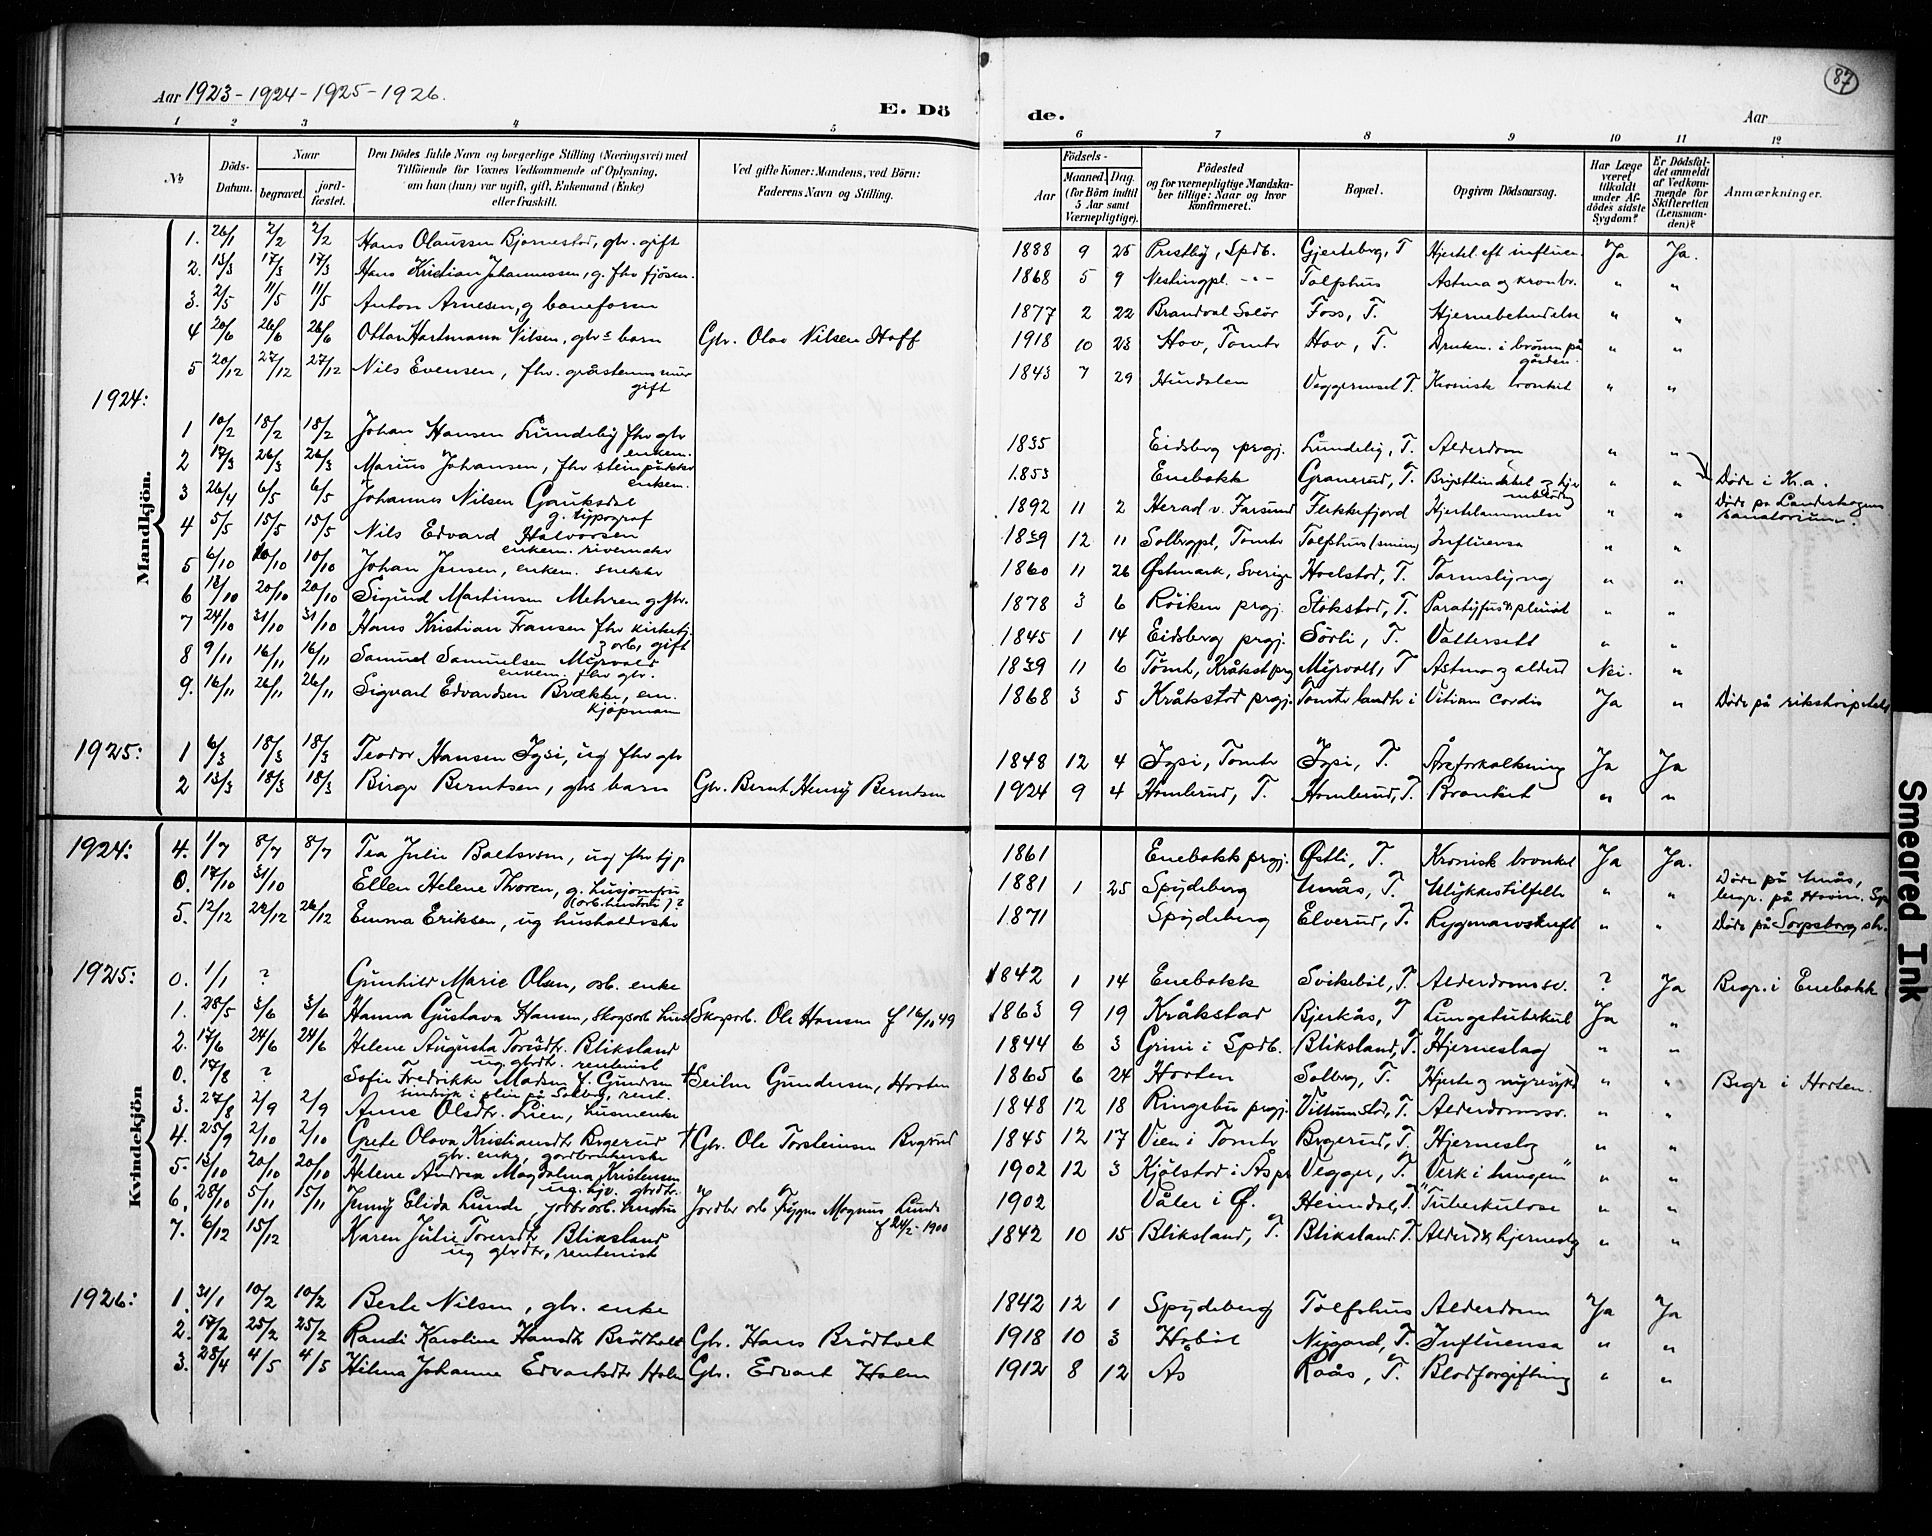 Aar 1923-1924-1925-1926.
E. Dö
de.
Aar
87
1 2 3 4 5 6 7 8 9 10 11 12
No
Döds-Datum.
Naar
begravet.
jord-fæstet.
Den Dödes fulde Navn og borgerlige Stilling (Næringsvei) med
Tilföiende for Voxnes Vedkommende af Oplysning,
om han (hun) var ugift, gift, Enkemand (Enke)
eller fraskilt.
Ved gifte Koner: Mandens, ved Börn:
Faderens Navn og Stilling.
Födsels-
Aar
Maaned. Dag.
(for Börn indtil
5 Aar samt
Værnepligtige).
Födested
og for værnepligtige Mandska-
ber tillige: Naar og hvor
konfirmeret.
Bopæl.
Opgiven Dödsaarsag.
Har Læge
været
tilkaldt
under Af-
dödes sidste
Sygdom?
Er Dödsfal-
det anmeldt
af Vedkom-
mende for
Skifteretten
(Lensman-
den)?
Anmærkninger.
Mandkjön.
1. 26/1 2/2 2/2 Hans Olaussen Bjørnestad, gbr. gift 1888 9 25 Prestby, Spdb. Gjerteberg, T Hjertel. eft influen. Ja Ja.
2. 13/3 17/3 17/3 Hans Kristian Johannessen, g. fhv fjøsm. 1868 5 9 Tolfshus Astma og kronbr. " "
3. 2/5 11/5 11/5 Anton Arnesen, g baneform 1877 2 22 Brandval Solør Foss, T. Hjernebetndelse " "
4 20/6 26/6 26/6 Ottar Hartmann Nilsen, gbrs barn Gbr. Olav Nilsen Hoff 1918 10 23 Hov, Tomtr Hov, T. Drukn. i brønn på gården. " "
5 20/12 27/12 27/12 Nils Evensen, fhv. gråstensmur gift 1843 7 29 Hundalen T. Kronisk bronkit " "
1924:
1 10/2 18/2 18/2 Johan Hansen Lundeby fhv gbr enkem. 1835 Eidsberg prgj. Lundeby, T. Alderdom " "
2 17/3 26/3 26/3 Marius Johansen, fhv steinpukker enkem. 1853 Enebakk Granerud, T. " " Døde i Kr.a.
3 26/4 6/5 6/5 Johannes Nilsen Gauksdal g. typograf 1892 11 2 Herad v. Farsund Flekkefjord Hjertelammelse " " Døde på sanatorium.
4 5/5 15/5 15/5 Nils Edvard Halvorsen enkem. 1839 12 11 Solbergpl, Tomtr Tolfshus Influensa " "
5 6/10 10/10 10/10 Johan Jensen, enkem. snekker 1860 11 26 Østmark, Sverige Hoelstad, T. Tarmslyng " "
6 13/10 20/10 20/10 Sigurd Martinsen Mehren g gbr. 1878 3 6 Røiken prgj. Stokstad, T. Paratyfus & pleurit " "
7 24/10 31/10 31/10 Hans Kristian Fransen fhv kirketj. jorb, gift 1845 1 14 Eidsberg prgj. Sörli, T. Vattersott " "
8 9/11 16/11 16/11 Samuel Samuelsen Myrvold enkem. fhv gbr. 1839 11 6 Tomtr, Kråkst prg Myrvoll, T Astma og alderd Nei. "
9. 16/11 26/11 26/11 Sigvart Edvardsen Brække, em. kjøpmann 1868 3 5 Kråkstad prgj. Tomtr landh i Vitium cordis Ja " Døde på rikshospitalet
1925:
1 6/3 18/3 18/3 Teodor Hansen Igsi, ug fhv gbr 1848 12 4 Igsi, Tomtr Igsi, T. Åreforkalkning Ja Ja
2 13/3 18/3 18/3 Birger Berntsen, gbrs barn Gbr. Bernt Henry Berntsen 1924 9 4 Homlerud, T. Homlerud, T. Bronkit " "
Kvindekjön
1924:
4. 1/7 8/7 8/7 Tea Julie Baltsersen, ug fhv tjp 1861 Enebakk prgj. Østli, T. Kronisk bronkit Ja Ja.
0. 17/10 31/10 Ellen Helene Thoren, g. husjomfru 1881 1 25 Spydeberg Unås, T. Ulykkestilfelle " " Døde på Unås, begr. på Hovin. Sp
5. 12/12 22/12 26/12 Emma Eriksen, ug husholderske 1871 Spydeberg Elverud, T. Rygmarvskreft " " Døde på Sarpsborg skh.
1925:
0. 1/1 ? Gunhild Marie Olsen, arb. enke 1842 1 14 Enebakk Svikebøl, T. Alderdomssv. ? Ja Begr. i Enebakk
1. 28/5 3/6 3/6 Hanna Gustava Hansen, Skogsarb. hust Skogarb. Ole Hansen f 16/10 49 1863 9 19 Kråkstad Bjerkås, T Lungetuberkul Ja "
2. 17/6 24/6 24/6 Helene Augusta Toresdtr. Bliksland ug. gbrdt. rentenist 1844 6 3 Grini i Spdb. Bliksland, T. Hjerneslag " "
0. 17/8 ? Sofie Fredrikke Madsen f. Gundersen på Solberg, rent. † Seilm Gundersen, Horten 1865 6 24 Horten Solberg, T. Hjerte og nyresyk " " Begr i Horten.
3. 27/8 2/9 2/9 Anne Olsdtr. Lien, husmenke 1848 12 18 Ringebu prgj. Vittumstad, T. Alderdomssv. " "
4. 25/9 2/10 2/10 Grete Olava Kristiansdtr Bygerud gbr. enke, gårdbrukerske † Gbr. Ole Torsteinsen Bygerud 1845 12 17 Vien i Tomtr Bygerud, T. Hjerneslg " "
5. 13/10 20/10 20/10 Helene Andrea Magdalena Kristensen ug. hjv. gbrdtr. 1902 12 3 Kjølstad i Ås pr Vegger, T. "Verk i lungen" " "
6. 28/10 5/11 15/11 Jenny Elida Lunde, jordbrarb. hustru Jordbr arb Trygve Magnus Lunde f 24/2-1900 1902 Våler i Ø. Heimdal, T. Tuberkulose " "
7. 6/12 15/12 Karen Julie Toresdtr Bliksland ug gbrdtr, rentenist 1842 10 15 Bliksland, T. Bliksland. T. Alderd & hjerneslg " "
1926:
1. 31/1 10/2 10/2 Berte Nilsen, gbr. enke 1842 12 1 Spydeberg Tolfshus Alderdom Ja Ja
2. 17/2 25/2 25/2 Randi Karoline Hansdtr Brödholt Gbr. Hans Brödholt 1918 10 3 Hobøl Nygard, T. Influensa " "
3. 28/4 4/5 4/5 Hilma Johanne Edvartsdtr Holm Gbr. Edvart Holm 1912 8 12 Ås Raås, T. Blodforgiftning " "
Smeared Ink